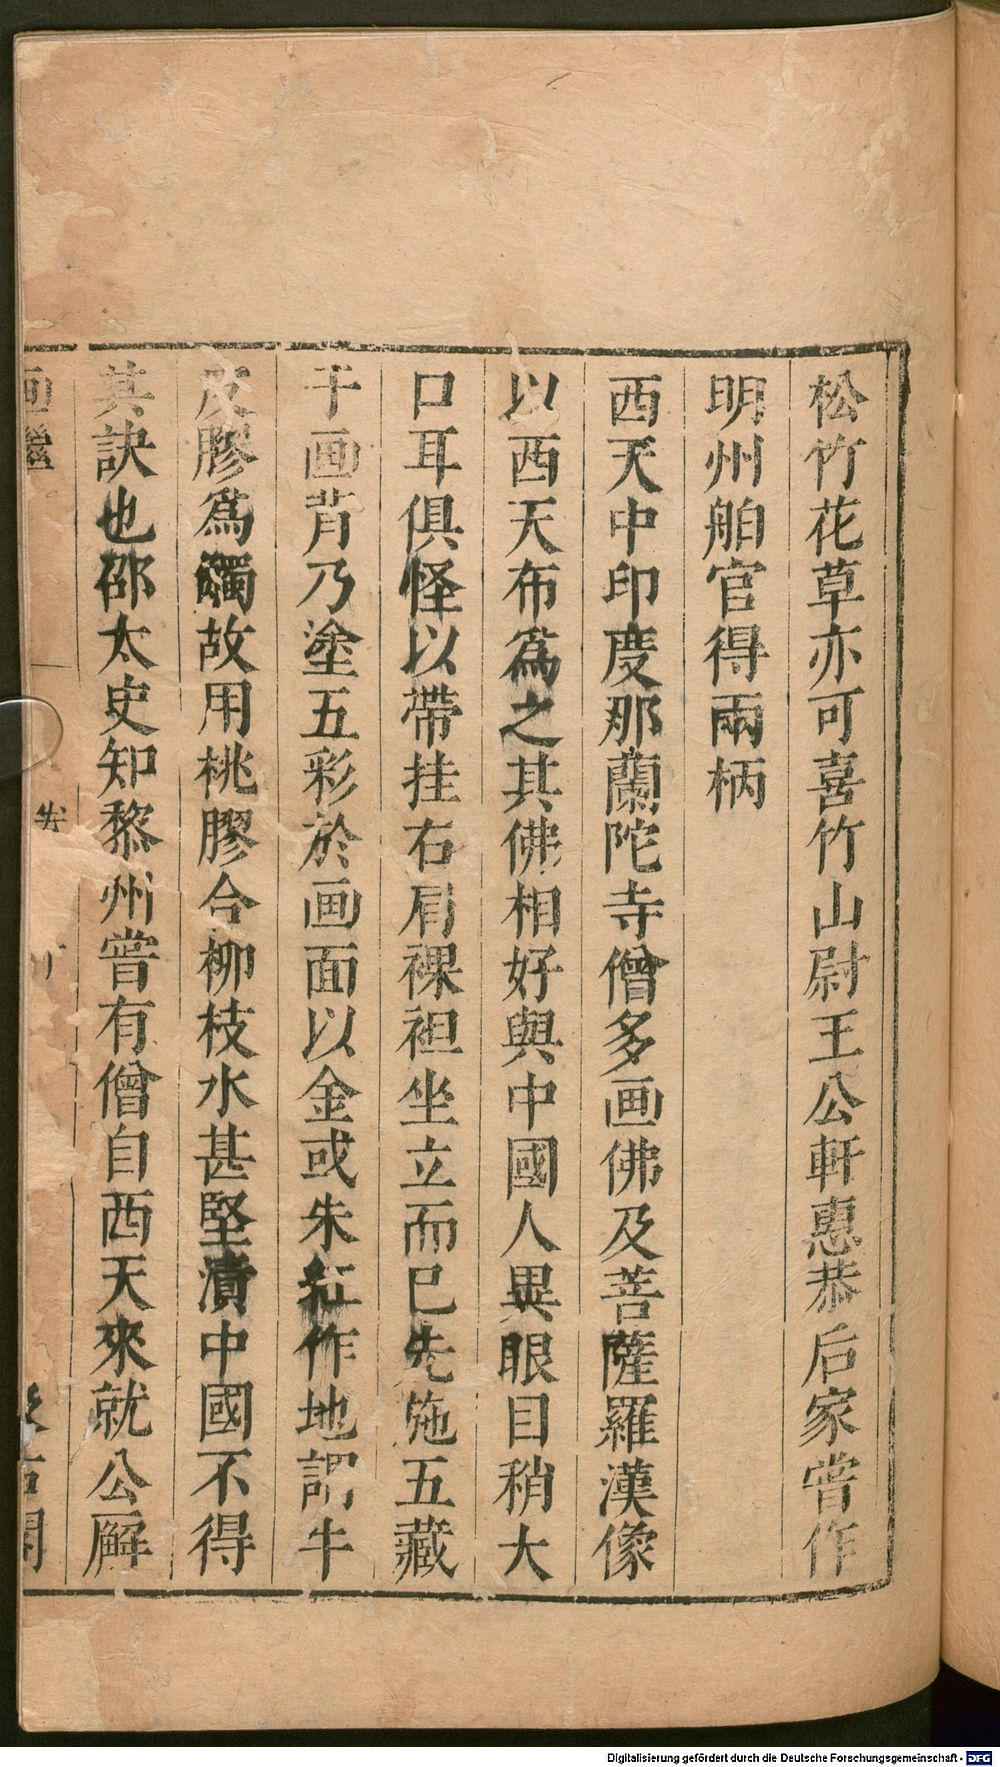 松竹花草亦可喜竹山尉王公軒惠恭后家嘗作
明州舶官得兩柄
西天中印度那蘭陀寺僧多画佛及菩薩羅漢像
以西天布爲之其佛相好與中國人異眼目稍大
口耳俱怪以帶挂右肩裸袒坐立而已先施五藏
于画背乃塗五彩於画面以金或朱紅作地謂牛
皮膠爲觸故用桃膠合柳枝水甚堅漬中國不得
其訣也邵太史知黎州嘗有僧自西天來就公廨
画繼
Digitalisierung gefördert durch die Deutsche Forschungsgemeinschaft - DFG